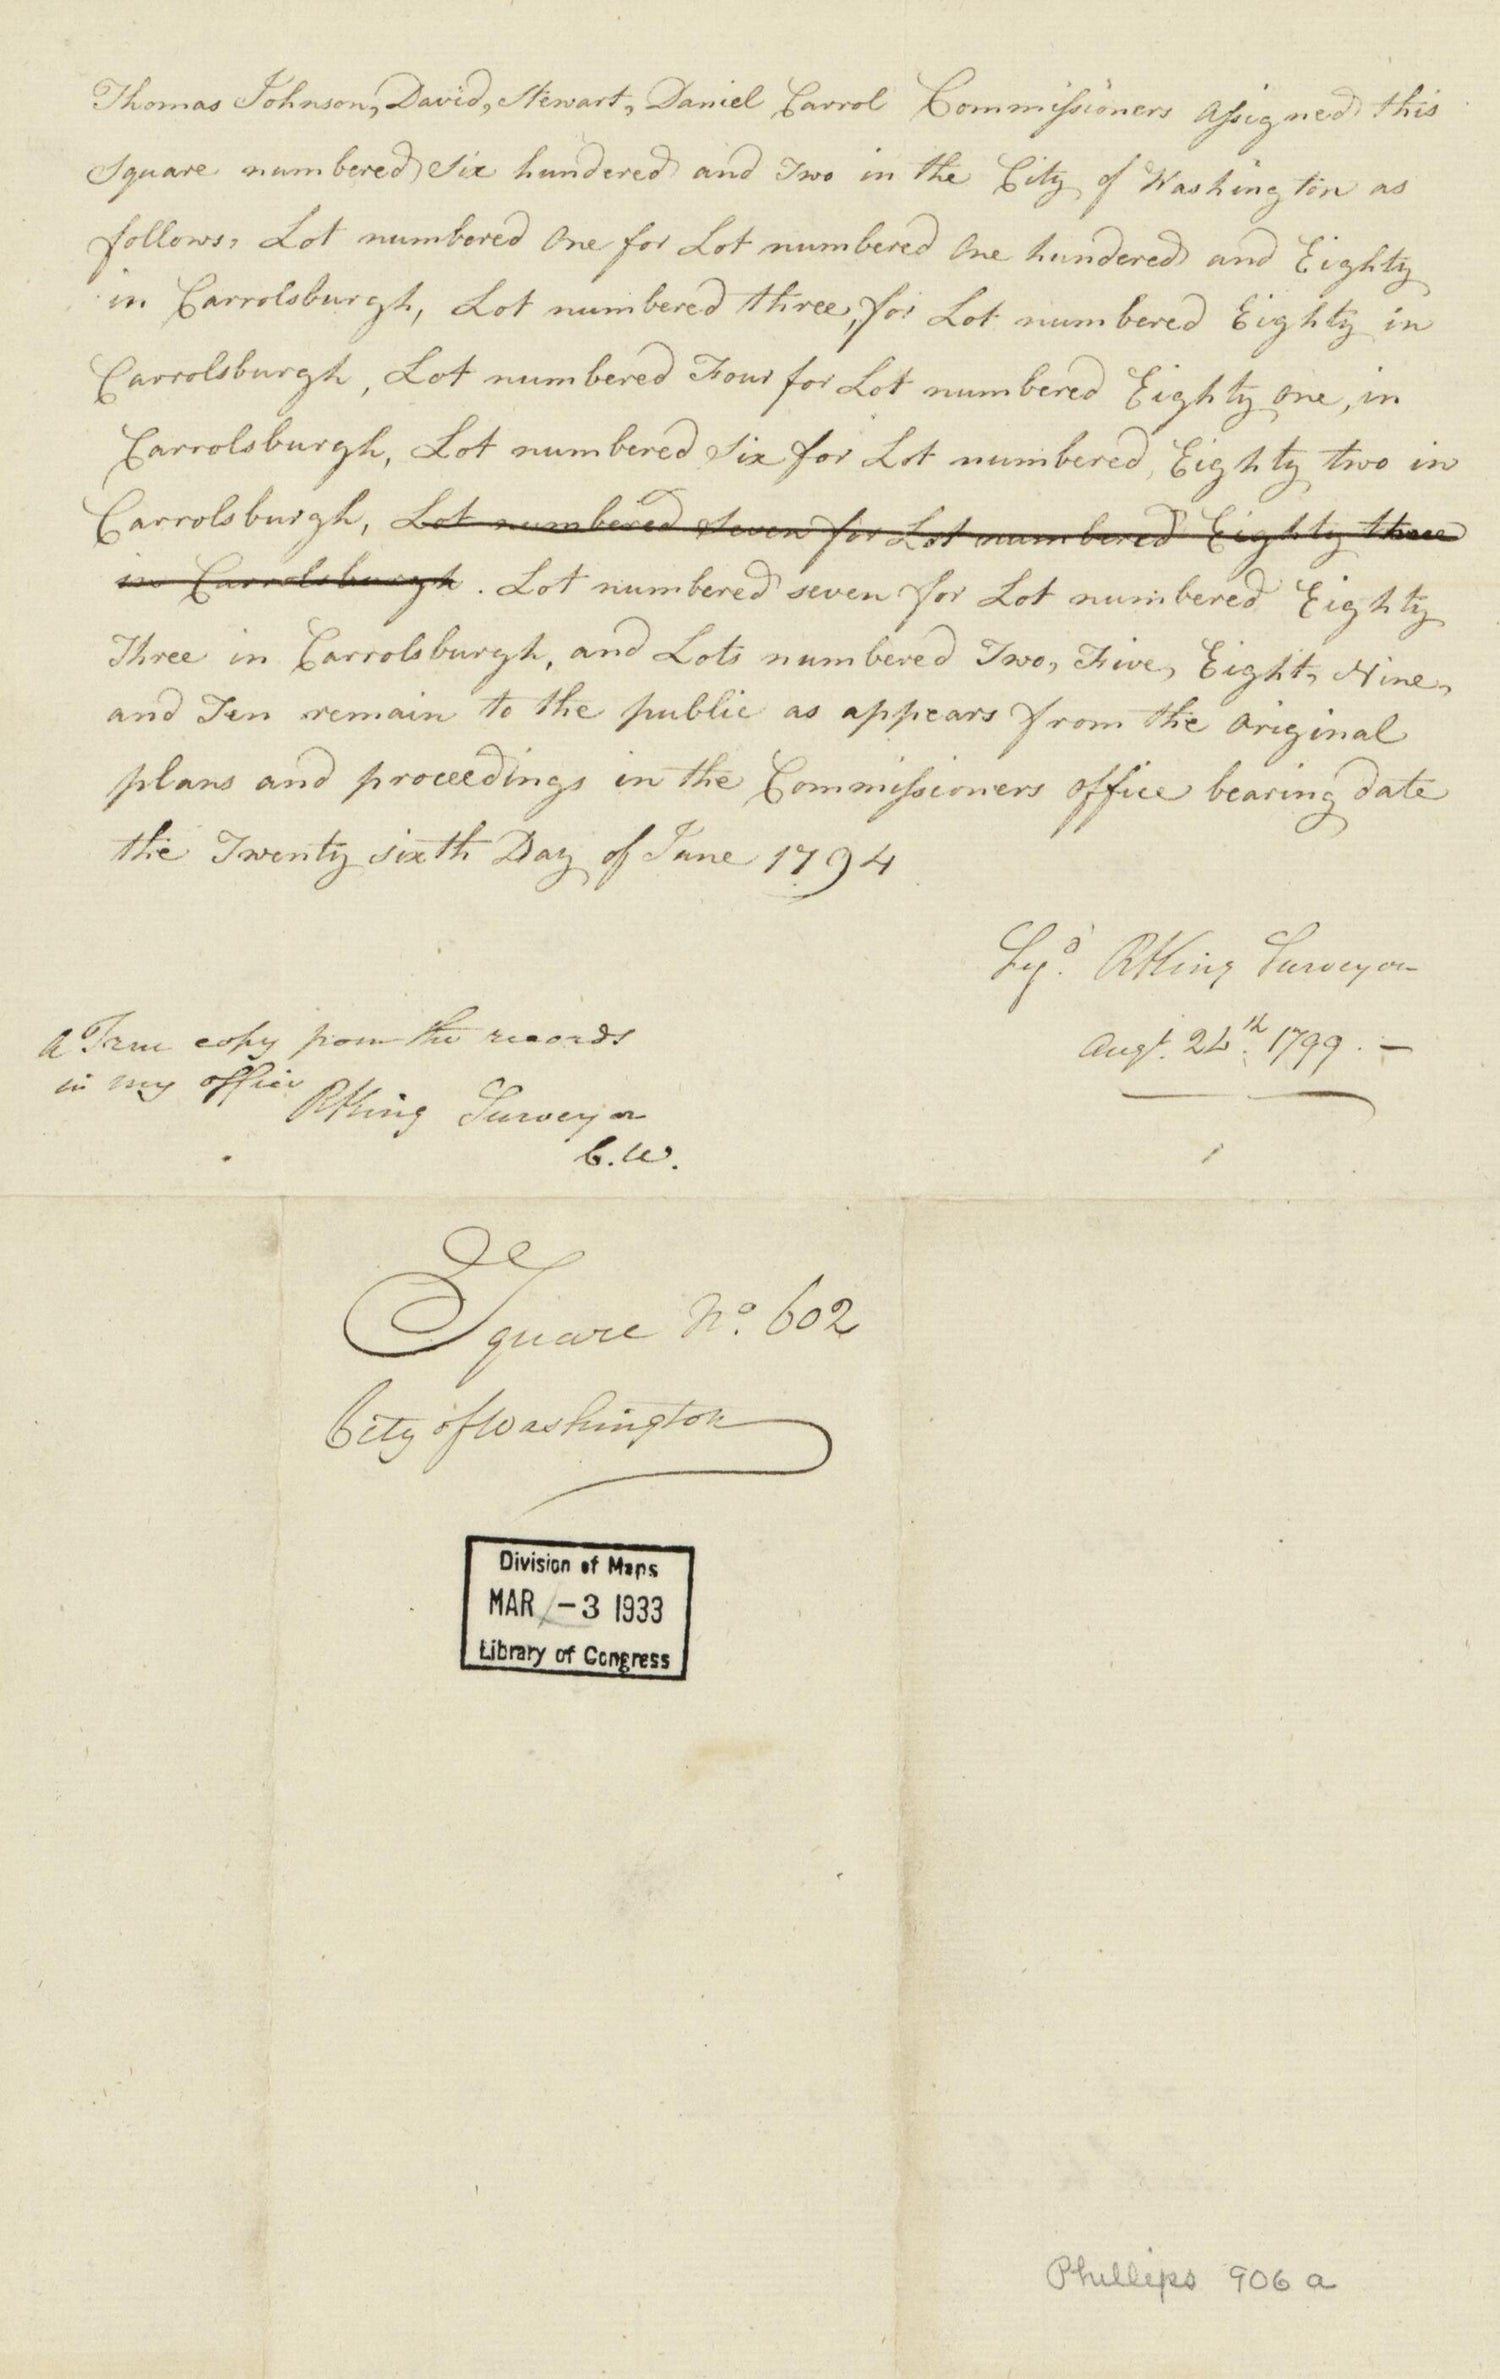 Thomas Johnson, David, Stewart, Daniel Carrol Commissioners Assigned this
Square numbered Six hundered and Two in the City of Washington as
follows, Lot numbered One for Lot numbered One hundered and Eighty
in Carrolsburgh, Lot numbered three, for Lot numbered Eighty in
Carrolsburgh, Lot numbered Four for Lot numbered Eighty One, in
Carrolsburgh, Lot numbered Six for Lot numbered Eighty two in
Carrolsburgh, Lot numbered Seven for Lot numbered Eighty three
in Carrolsburgh. Lot numbered seven for Lot numbered Eighty
Three in Carrolsburgh, and Lots numbered Two, Five, Eight, Nine,
and Ten remain to the public as appears from the Original
plans and proceedings in the Commissioners office bearing date
the Twenty sixth Day of June 1794
RKing Surveyor
Augt. 24th. 1799. —
A True copy from the records
in my office
RKing Surveyor
C.W.
Square No. 602
City of Washington
Division of Maps
MAR -3 1933
Library of Congress
Phillips 906 a